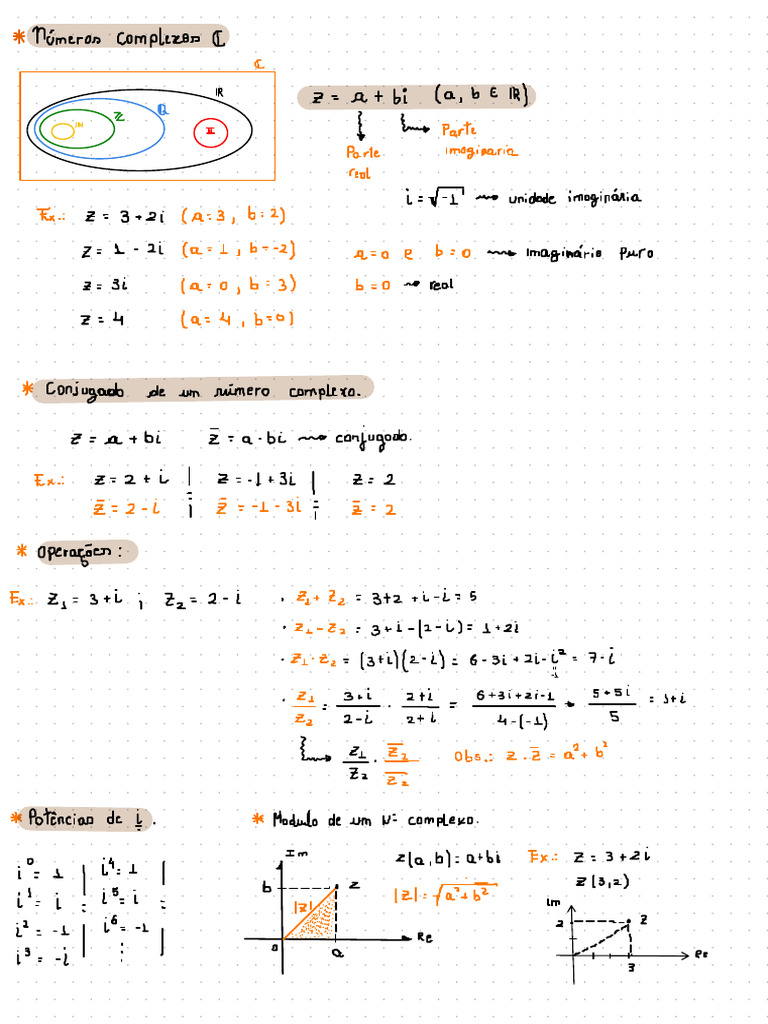 * Números complexos ℂ
ℂ
IR
Q
Z
IN
II
z = a + bi (a, b ∈ IR)
Parte real
Parte imaginaria
i = √-1 ⟿ unidade imaginária
Ex.: z = 3 + 2i (a = 3, b = 2)
z = 1 - 2i (a = 1, b = -2)
z = 3i (a = 0, b = 3)
z = 4 (a = 4, b = 0)
a = 0 e b = 0 ⟿ imaginário puro
b = 0 ⟿ real
* Conjugado de um número complexo.
z = a + bi z̄ = a - bi ⟿ conjugado.
Ex.: z = 2 + i | z = -1 + 3i | z = 2
z̄ = 2 - i ; z̄ = -1 - 3i ; z̄ = 2
* Operações:
Ex.: Z₁ = 3 + i ; Z₂ = 2 - i
· Z₁ + Z₂ = 3 + 2 + i - i = 5
· Z₁ - Z₂ = 3 + i - (2 - i) = 1 + 2i
· Z₁ · Z₂ = (3+i)(2-i) = 6 - 3i + 2i - i² = 7 - i
-1
· Z₁/Z₂ = 3+i/2-i · 2+i/2+i = 6+3i+2i-1/4-(-1) = 5+5i/5 = 1+i
Z₁/Z₂ · Z̄₂/Z̄₂ Obs.: z · z̄ = a² + b²
* Potências de i.
i⁰ = 1 | i⁴ = 1
i¹ = i | i⁵ = i
i² = -1 | i⁶ = -1
i³ = -i | ⋮
* Modulo de um Nº complexo.
Im
b
z
|z|
0
a
Re
z(a, b) = a + bi
|z| = √a² + b²
Ex.: z = 3 + 2i
z(3, 2)
Im
2
z
3
Re